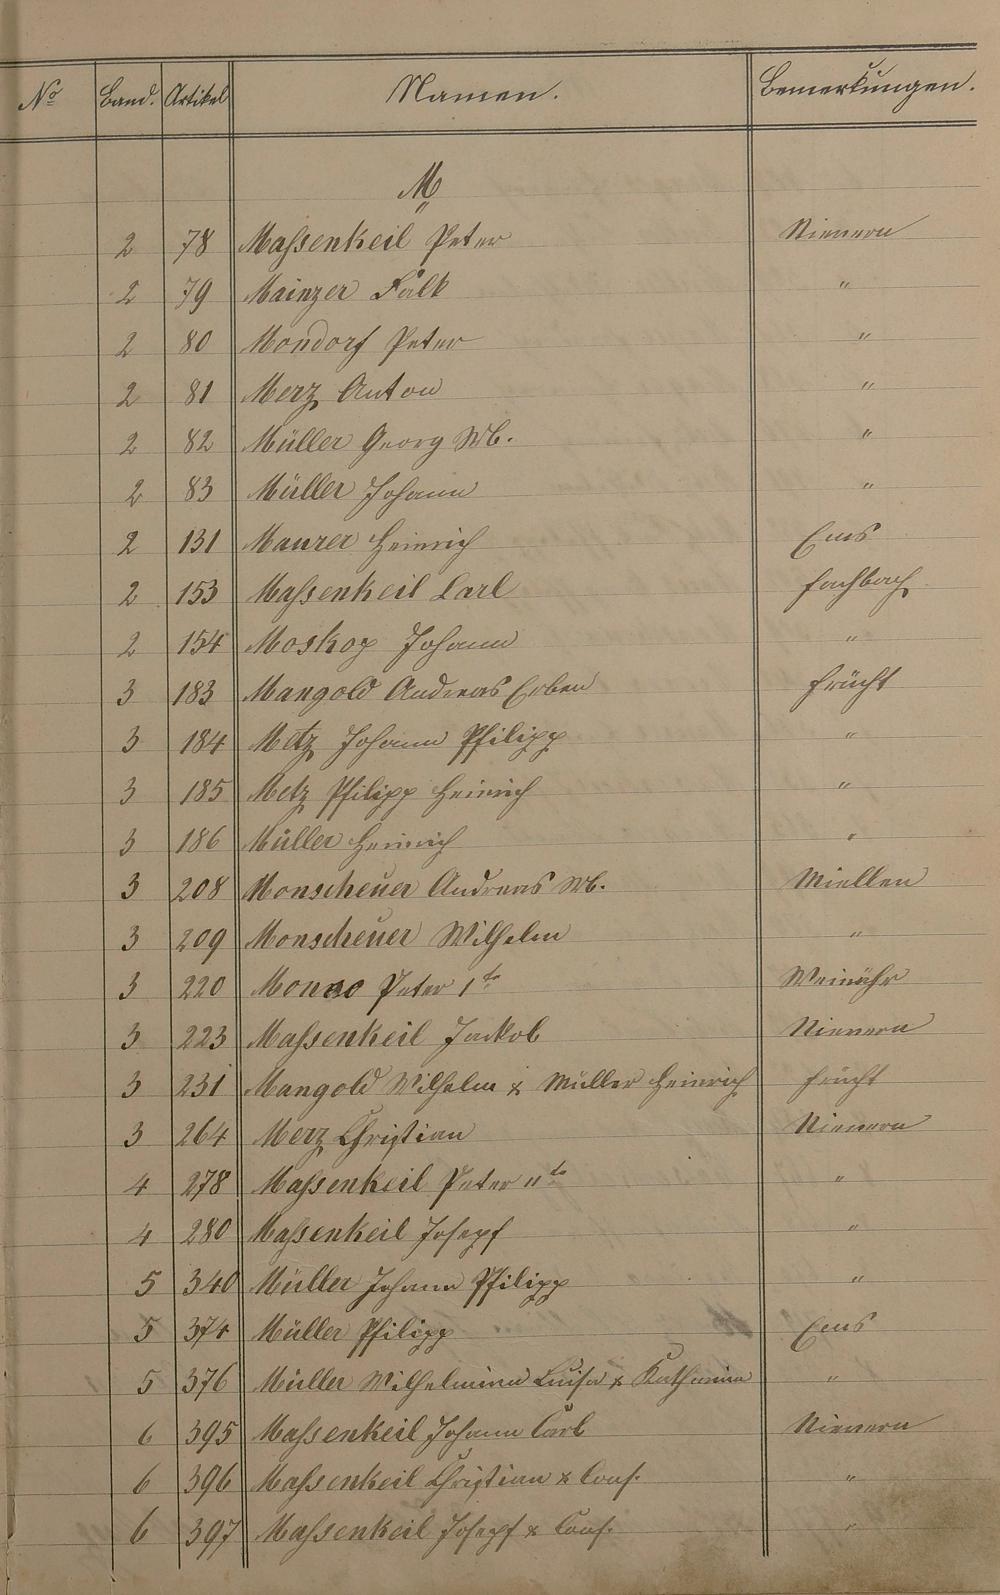 No Band. Artikel Namen. Bemerkungen.
M
2 78 Maßenkeil Peter Nievern
2 79 Mainzer Falk "
2 80 Mondorf Peter "
2 81 Merz Anton "
2 82 Müller Georg Wb. "
2 83 Müller Johann "
2 131 Maurer Heinrich Ems
2 153 Maßenkeil Carl Fachbach
2 154 Moskop Johann "
3 183 Mangold Andreas Erben Frücht
3 184 Metz Johann Philipp "
3 185 Metz Philipp Heinrich "
3 186 Müller Heinrich "
3 208 Monscheuer Andreas Wb. Miellen
3 209 Monscheuer Wilhelm "
3 220 Peter 1te Weinähr
3 223 Maßenkeil Jackob Nievern
3 231 Mangold Wilhelm & Müller Heinrich Frücht
3 264 Merz Christian Nievern
4 278 Maßenkeil Peter IIte "
4 280 Maßenkeil Joseph "
5 340 Müller Johann Philipp "
5 374 Müller Philipp Ems
5 376 Müller Wilhelmina Luisa & Katharina "
6 395 Maßenkeil Johann Carl Nievern
6 396 Maßenkeil Christian & Cons. "
6 397 Maßenkeil Joseph & Cons. "